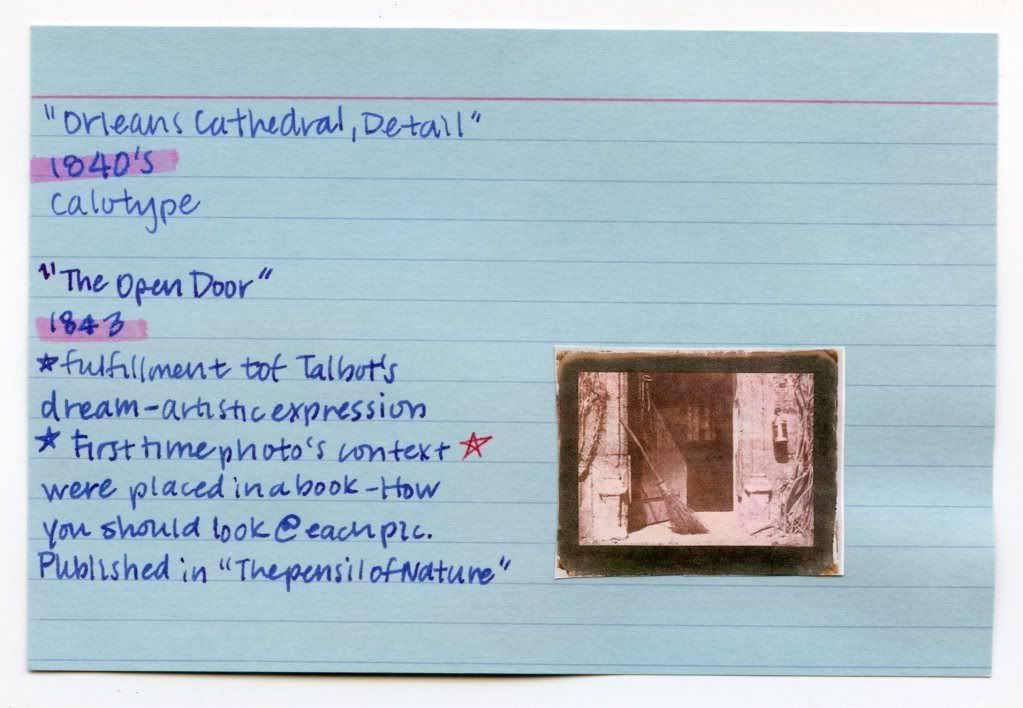 "Orleans Cathedral, Detail"
1840's
Calotype
"The Open Door"
1843
*fulfillment tof Talbot's
dream-artistic expression
* First time photo's context ☆
were placed in a book - How
you should look @ each pic.
Published in "The pensil of Nature"